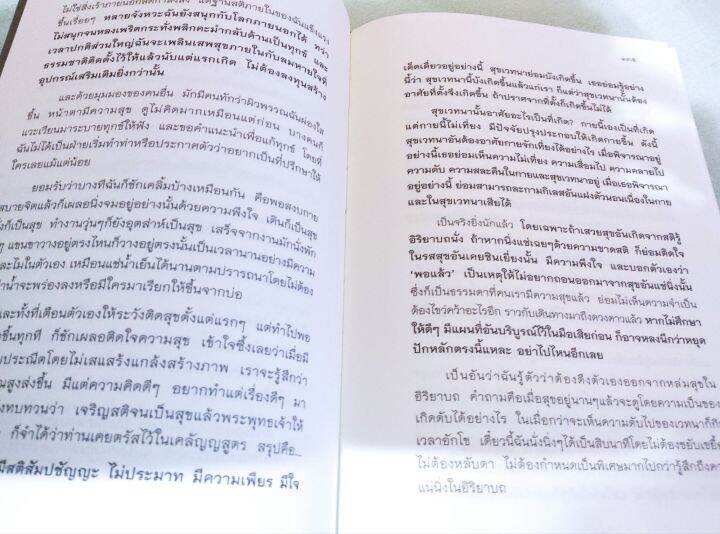 ไม่ใช่สิ่งเร้าภายนอก
ขึ้นเรื่อยๆ หลายจังหวะฉันยังสนุกกับโลกภายนอกได้ ทว่า
ไม่สนุกจนหลงเพริดกระทั่งพลิกคะมำกลับด้านเป็นทุกข์ และ
เวลาปกติส่วนใหญ่ฉันจะเพลินเสพสุขภายในกับลมหายใจที่
ธรรมชาติติดตั้งไว้ให้แล้วนับแต่แรกเกิด ไม่ต้องลงทุนสร้าง
อุปกรณ์เสริมเติมยิ่งกว่านั้น
และด้วยมุมมองของคนอื่น มักมีคนทักว่าผิวพรรณฉันผ่องใส
ขึ้น หน้าตามีความสุข ดูไม่คิดมากเหมือนแต่ก่อน บางคนก็
แวะเวียนมาระบายทุกข์ให้ฟัง และขอคำแนะนำเพื่อแก้ทุกข์ โดยที่
ฉันไม่ได้เป็นฝ่ายเริ่มทำท่าหรือประกาศตัวว่าอยากเป็นที่ปรึกษาให้
ใครเลยแม้แต่น้อย
ยอมรับว่าบางทีฉันก็ชักเคลิ้มบ้างเหมือนกัน คือพอสงบกาย
สบายจิตแล้วก็เผลอนิ่งจมอยู่อย่างนั้นด้วยความพึงใจ เดินก็เป็นสุข
ก็เป็นสุข ทำงานวุ่นๆก็ยังอุตส่าห์เป็นสุข เสร็จจากงานมักนั่งพัก
ๆ แขนขาวางอยู่ตรงไหนก็วางอยู่ตรงนั้นเป็นเวลานานอย่างมีความ
และไมในตัวเอง เหมือนแช่น้ำเย็นได้นานตามปรารถนาโดยไม่ต้อง
น้ำจะพร่องลงหรือมีใครมาเรียกให้ขึ้นจากบ่อ
และทั้งที่เตือนตัวเองให้ระวังติดสุขตั้งแต่แรกๆ แต่ทำไปพอ
ขึ้นทุกที ก็ชักเผลอติดใจความสุข เข้าใจซึ้งเลยว่าเมื่อมี
ประณีตโดยไม่เสแสร้งแกล้งสร้างภาพ เราจะรู้สึกว่า
สูงส่งขึ้น มีแต่ความคิดดีๆ อยากทำแต่เรื่องดีๆ มา
งทบทวนว่า เจริญสติจนเป็นสุขแล้วพระพุทธเจ้าให้
ก็จำได้ว่าท่านเคยตรัสไว้ในเคลัญญสูตร สรุปคือ...
มีสติสัมปชัญญะ ไม่ประมาท มีความเพียร มีใจ
๒๓๕
เด็ดเดี่ยวอยู่อย่างนี้ สุขเวทนาย่อมบังเกิดขึ้น เธอย่อมรู้อย่าง
นี้ว่า สุขเวทนานี้บังเกิดขึ้นแล้วแก่เรา ก็แต่ว่าสุขเวทนานั้นต้อง
อาศัยที่ตั้งจึงเกิดขึ้น ถ้าปราศจากที่ตั้งก็เกิดขึ้นไม่ได้
สุขเวทนานั้นอาศัยอะไรเป็นที่เกิด? กายนี้เองเป็นที่เกิด
แต่กายนี้ไม่เที่ยง มีปัจจัยปรุงประกอบให้เกิดกายขึ้น ดังนี้
สุขเวทนาอันต้องอาศัยกายจักเที่ยงได้อย่างไร เมื่อพิจารณาอยู่
อย่างนี้เธอย่อมเห็นความไม่เที่ยง ความเสื่อมไป ความคลายไป
ความดับ ความสละคืนในกายและสุขเวทนาอยู่ เมื่อเธอพิจารณา
อยู่อย่างนี้ ย่อมสามารถละกามกิเลสอันแฝงตัวนอนเนื่องในกาย
และในสุขเวทนาเสียได้
เป็นจริงยิ่งนักแล้ว โดยเฉพาะถ้าเสวยสุขอันเกิดจากสติรู้
อิริยาบถนั่ง ถ้าหากนิ่งแช่เฉยๆด้วยความขาดสติ ก็ย่อมติดใจ
ในรสสุขอันเคยชินเยี่ยงนั้น มีความพึงใจ และบอกตัวเองว่า
‘พอแล้ว’ เป็นเหตุให้ไม่อยากถอนออกมาจากสุขอันแช่นิ่งนั้น
ซึ่งก็เป็นธรรมดาที่คนเรามีความสุขแล้ว ย่อมไม่เห็นความจำเป็น
ต้องไขว่คว้าอะไรอีก ราวกับเดินทางมาถึงดวงดาวแล้ว หากไม่ศึกษา
ให้ดีๆ มีแผนที่อันบริบูรณ์ไว้ในมือเสียก่อน ก็อาจหลงนึกว่าหยุด
ปักหลักตรงนี้แหละ อย่าไปไหนอีกเลย
เป็นอันว่าฉันรู้ตัวว่าต้องดึงตัวเองออกจากหล่มสุขใน
อิริยาบถ คำถามคือเมื่อสุขอยู่นานๆแล้วจะดูโดยความเป็นของ
เกิดดับได้อย่างไร ในเมื่อกว่าจะเห็นความดับไปของเวทนาก็กิน
เวลาอักโข เดี๋ยวนี้ฉันนั่งนิ่งๆได้เป็นสิบนาทีโดยไม่ต้องขยับเขยื้อน
ไม่ต้องหลับตา ไม่ต้องกำหนดเป็นพิเศษมากไปกว่ารู้สึกถึง
แน่นิ่งในอิริยาบถ